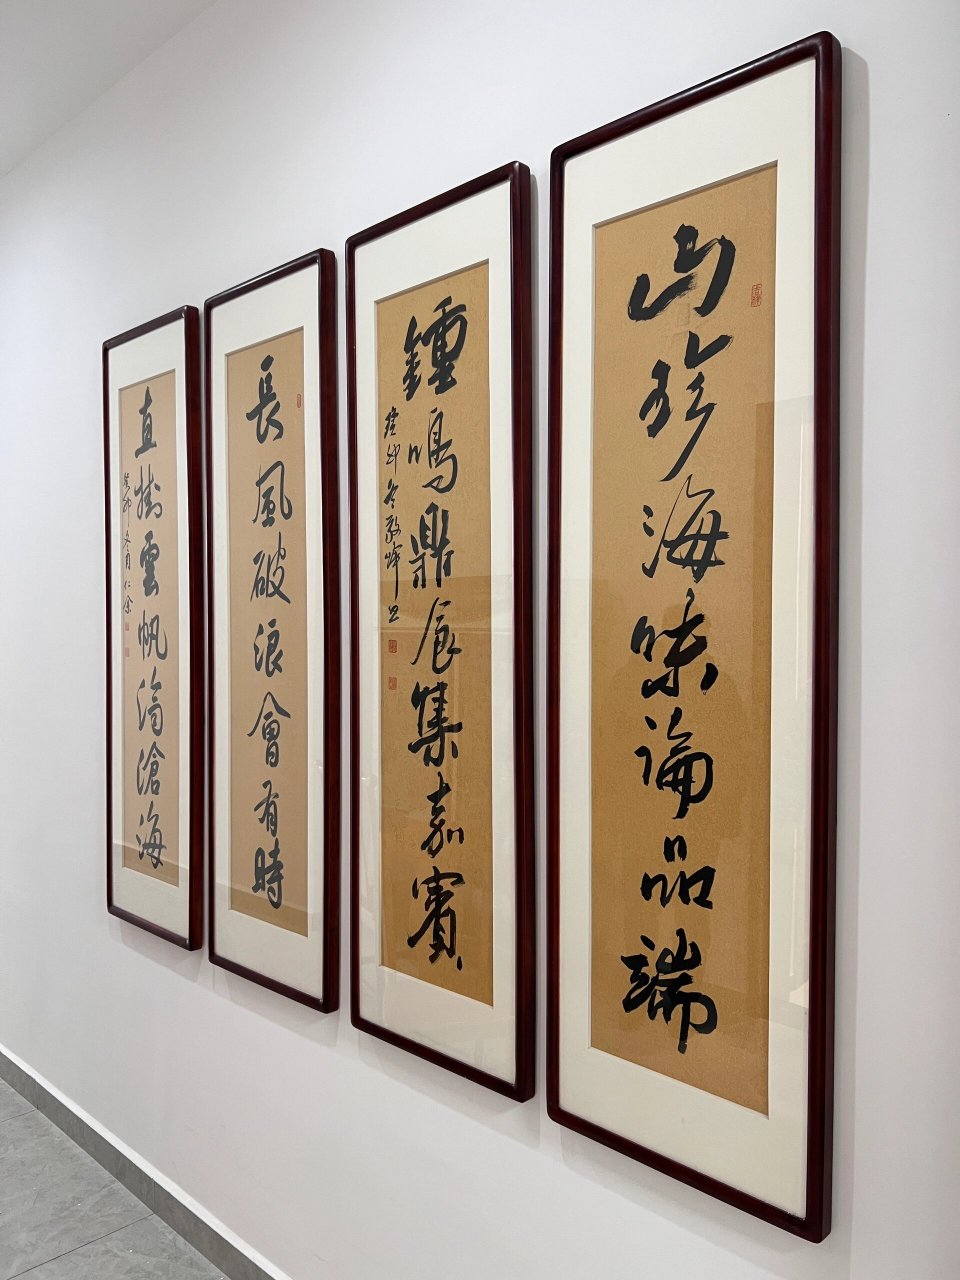 山珍海味論品端
鍾鳴鼎食集嘉賓
癸卯冬敬
長風破浪會有時
直掛雲帆濟滄海
癸卯冬月仁余